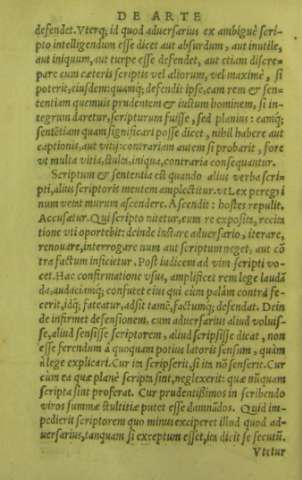 DE ARTE
defendet. Vterq; id quod aduersarius ex ambiguè scri-
pto intelligendum esse dicet aut absurdum, aut inutile,
aut iniquum, aut turpe esse defendet, aut etiam discre=
pare cum cæteris scriptis vel aliorum, vel maximè, si
poterit, eiusdem: quamq; defendit ipse, eam rem & sen=
tentiam quemuis prudentem & iustum hominem, si in=
tegrum daretur, scripturum fuisse, sed planius: eamq;
sentētiam quam significari posse dicet, nihil habere aut
captionis, aut vitij: contrariam autem si probarit, fore
vt multa vitia, stulta, iniqua, contraria consequantur.
Scriptum & sententia est quando alius verba scri-
pti, alius scriptoris mentem amplectitur. vt Lex peregri
num vetat murum ascendere. Ascendit: hostes repulit.
Accusatur. Qui scripto nitetur, eum re exposita, recita
tione vti oportebit: deinde instare aduersario, iterare,
renouare, interrogare num aut scriptum neget, aut cō
tra factum inficietur. Pòst iudicem ad vim scripti vo=
cet. Hac confirmatione vsus, amplificet rem lege laudā
da, audaciamq; confutet eius qui cùm palàm contrà fe=
cerit, idq; fateatur, adsit tamē, factumq; defendat. Dein
de infirmet defensionem, cum aduersarius aliud voluis-
se, aliud sensisse scriptorem, aliud scripsisse dicat, non
esse ferendum à quoquam potius latoris sensum, quàm
à lege explicari. Cur ita scripserit, si ita nō senserit. Cur
cùm ea quæ planè scripta sint, neglexerit: quæ nusquam
scripta sint proferat. Cur prudentißimos in scribendo
viros summæ stultitiæ putet esse damnādos. Quid im-
pedierit scriptorem quo minus exciperet illud quod ad-
uersarius, tanquam si exceptum esset, ita dicit se secutū.
Vtetur